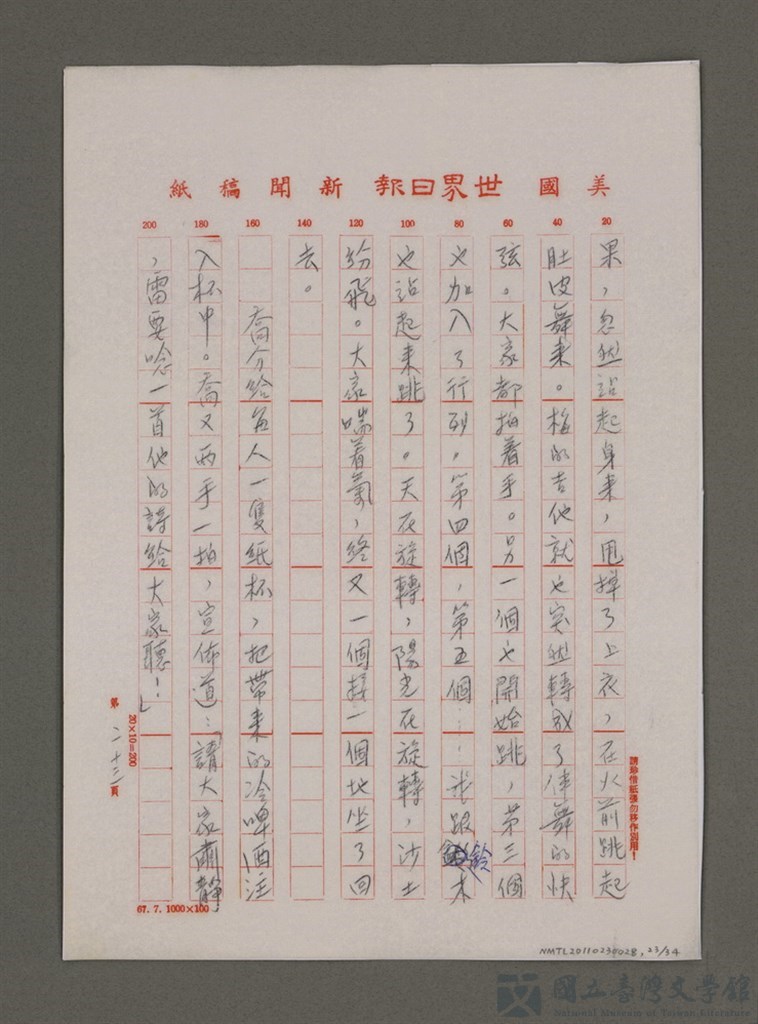 美國世界日報新聞稿紙
20 40 60 80 100 120 140 160 180 200
果，忽然站起身來，甩掉了上衣，在火前跳起
肚皮舞來。梅的吉他就也突然轉成了伴舞的快
弦。大家都拍着手。另一個也開始跳，第三個
也加入了行列。第四個，第五個……米跟鈴木
也站起來跳了。天在旋轉，陽光在旋轉，沙土
紛飛。大家喘着氣，終又一個接一個地坐了回
去。
喬分給每人一隻紙杯，把帶來的冷啤酒注
入杯中。喬又兩手一拍，宣佈道：「請大家肅靜
，雷要唸一首他的詩給大家聽！」
請珍惜紙張勿移作別用！
20×10=200
第二十三頁
67.7.1000×100
NMTL20110230028, 23/34
國立臺灣文學館
National Museum of Taiwan Literature